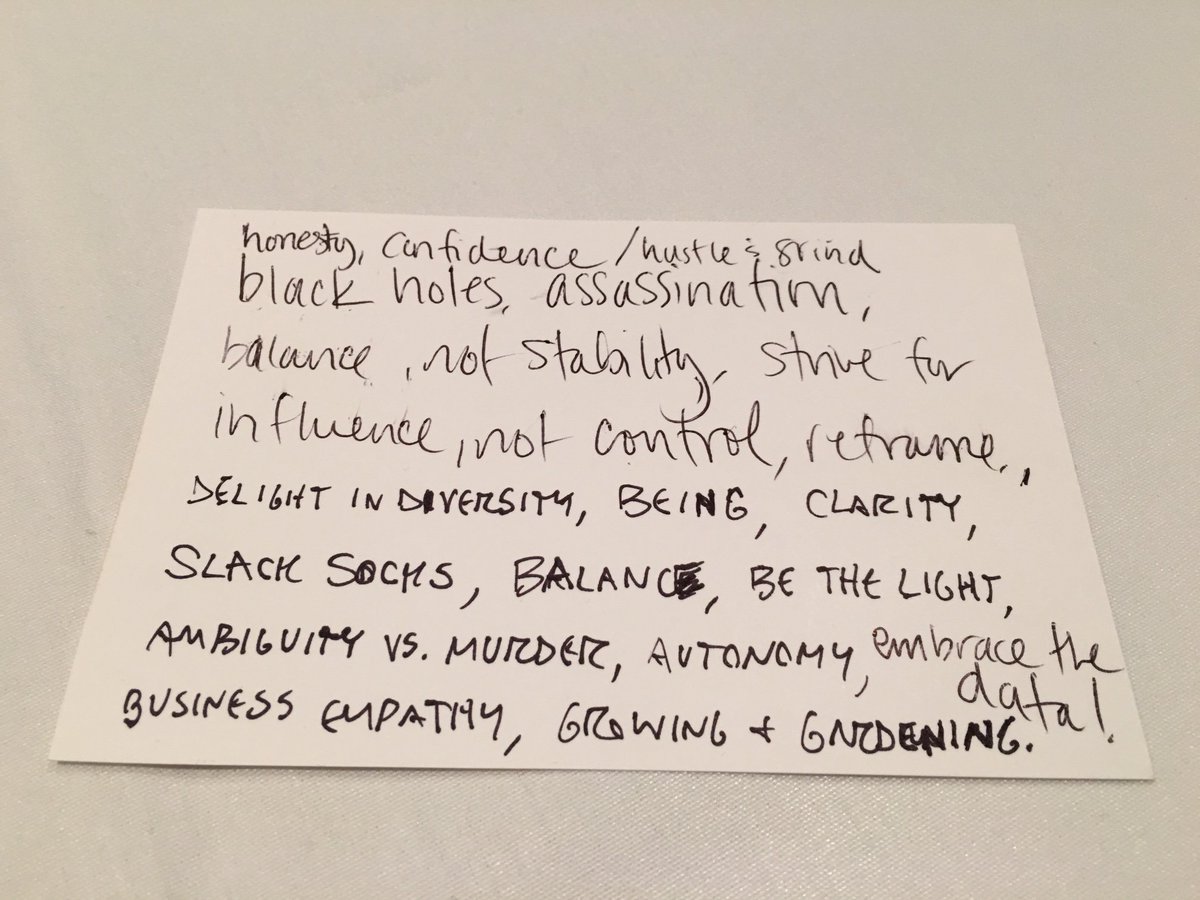 honesty, confidence / hustle & grind
black holes, assassination,
balance, not stability, strive for
influence, not control, reframe,
DELIGHT IN DIVERSITY, BEING, CLARITY,
SLACK SOCKS, BALANCE, BE THE LIGHT,
AMBIGUITY VS. MURDER, AUTONOMY, embrace the
data!
BUSINESS EMPATHY, GROWING + GARDENING.